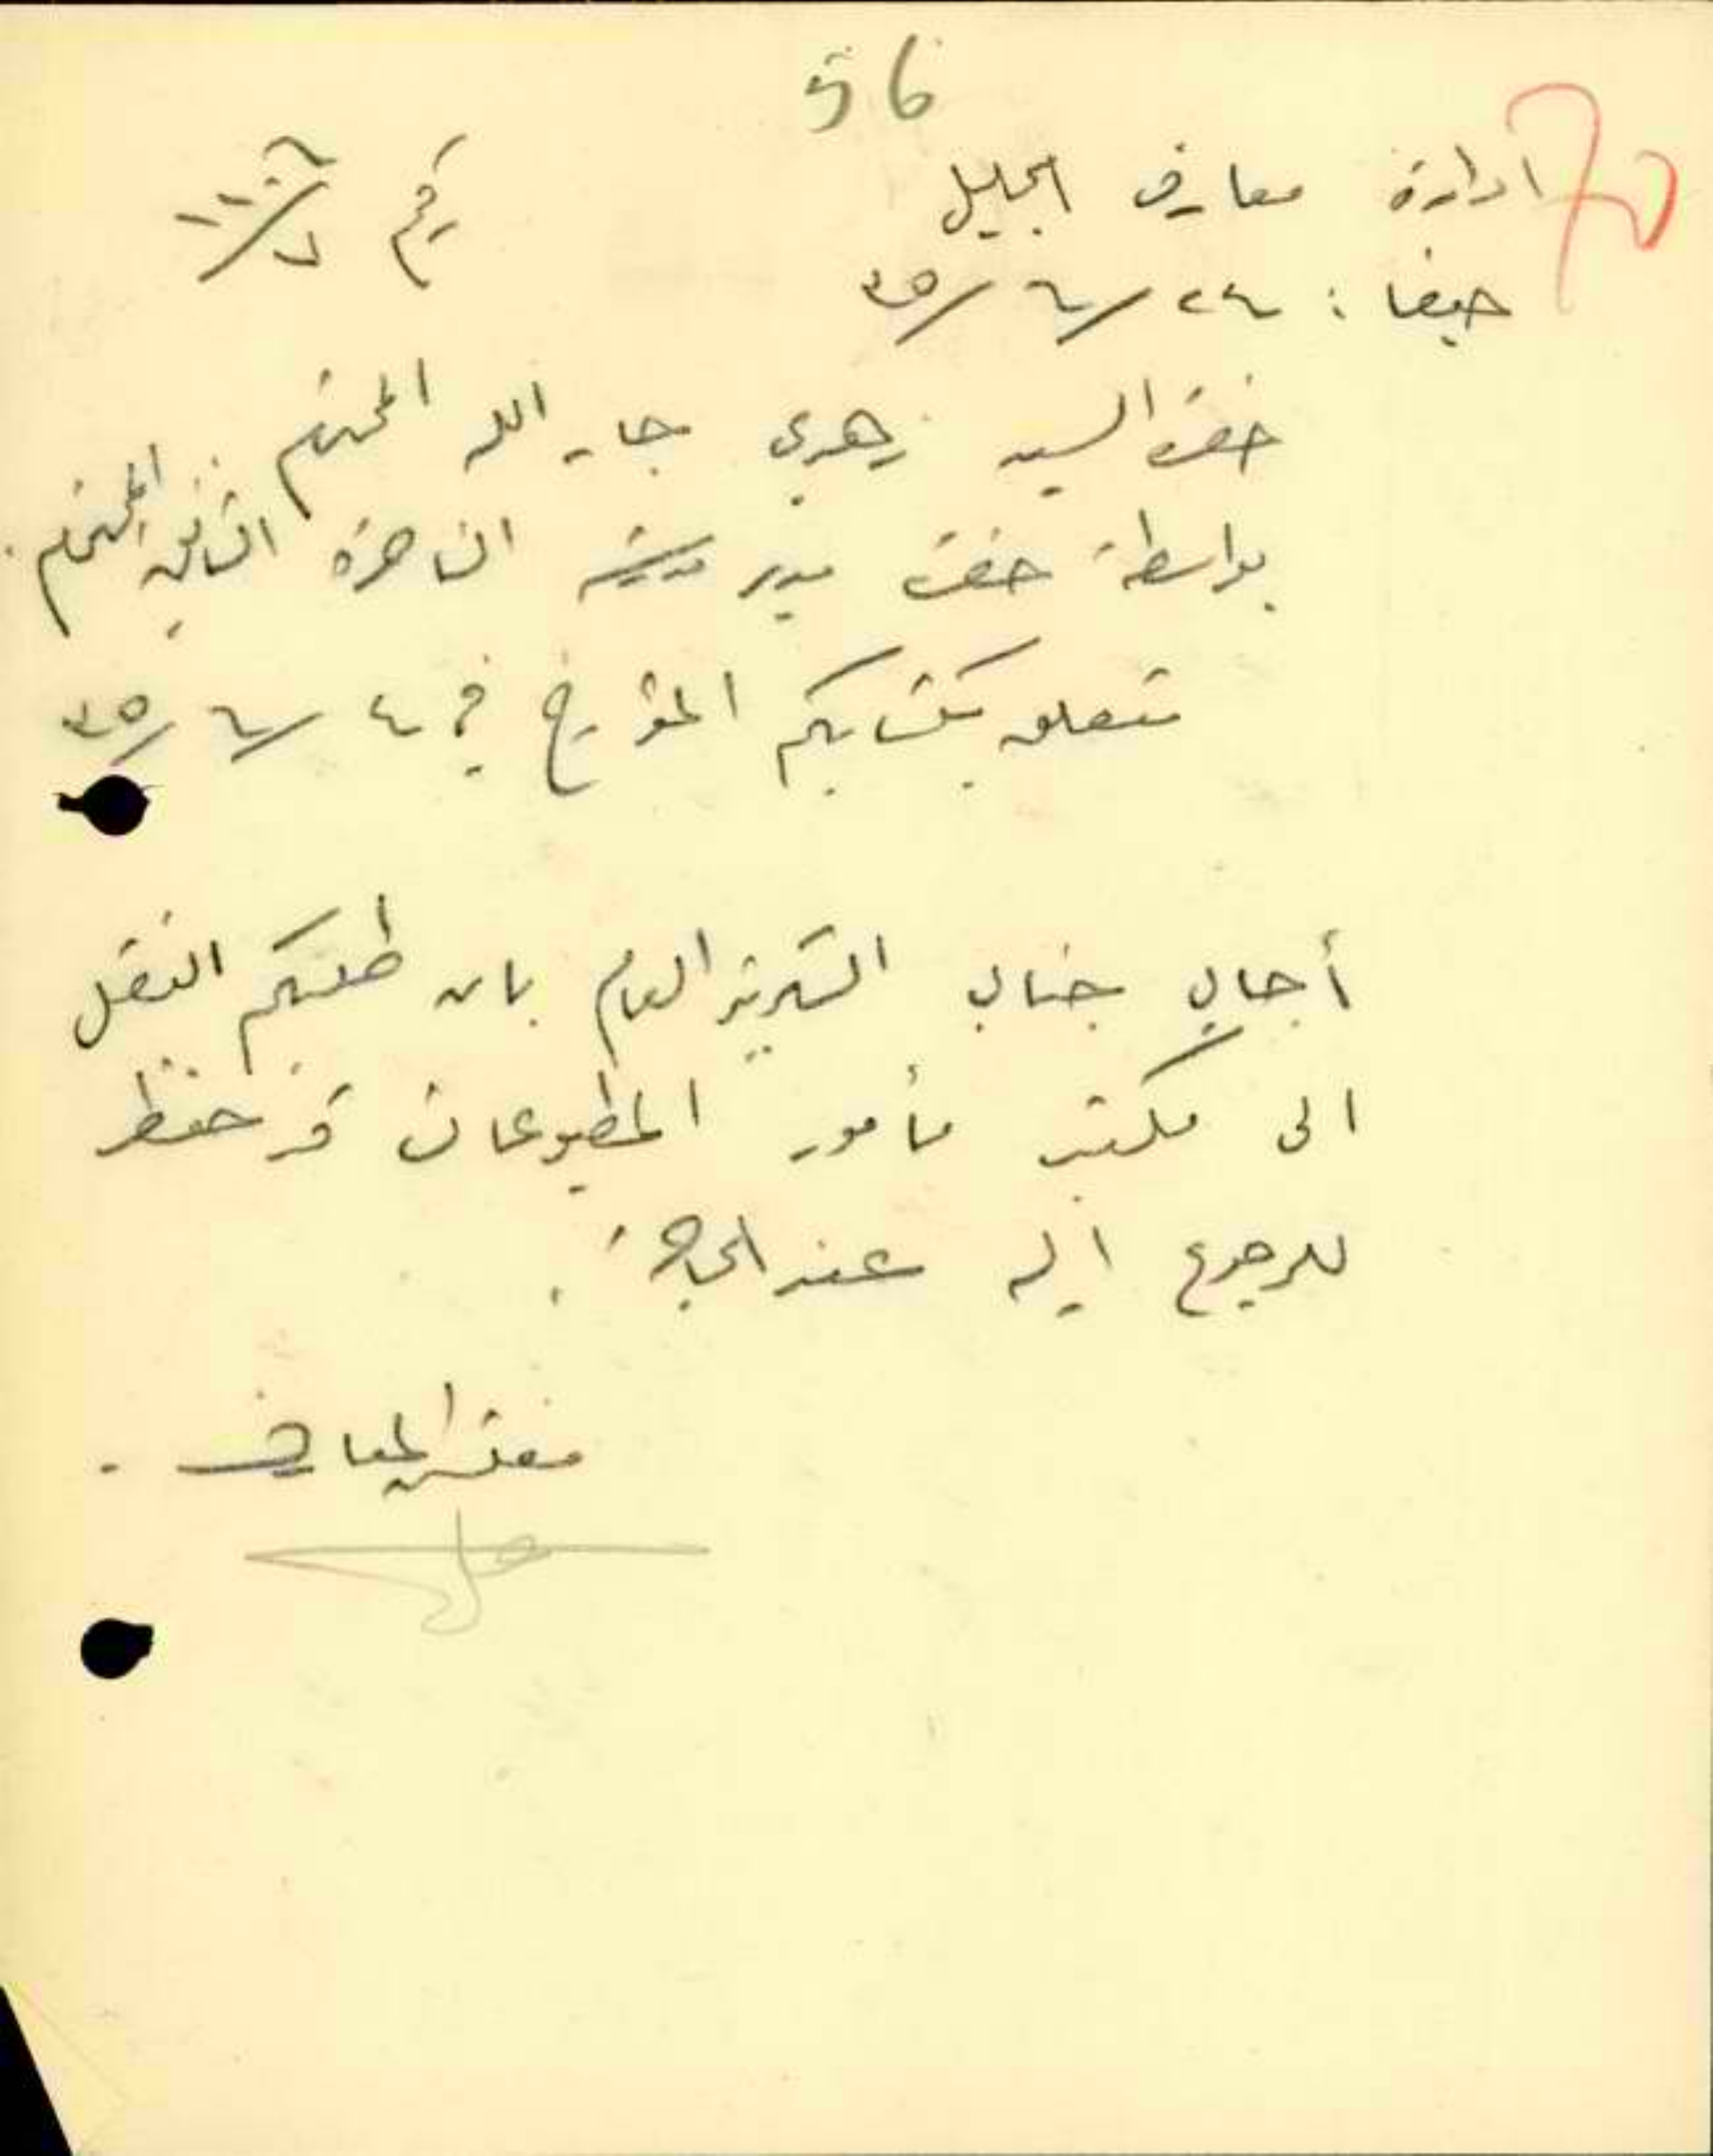 56
70
ادارة معارف الجليل
رقم ١١٠٦/٧
حيفا : ٢٤/٦/٣٥
حضرة السيد زهدي جار الله المحترم
بواسطة حضرة مدير مدرسة الناصرة الثانوية المحترم.
متعلق بكتابكم المؤرخ في ٤/٦/٣٥
أجابني جناب السكرتير العام بان طلبكم النقل
الى مكتب مأمور المطبوعات قد حفظ
للرجوع اليه عند الحاجة.
مفتش المعارف.